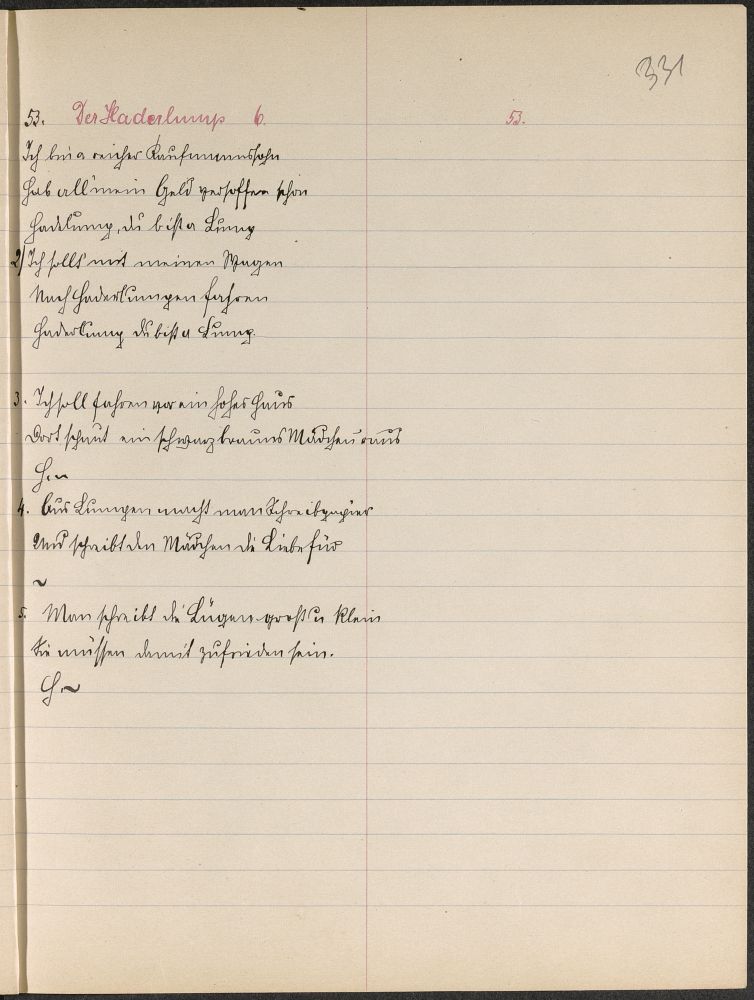 331
53. Der Haderlump 6.
53.
Ich bin a reicher Kaufmannssohn
Hab all mein Geld versoffen schon
Hadelump, du bist a Lump
2) Ich sollt mit meinen Wagen
Nach Haderlumpen fahren
Haderlump du bist a Lump.
3. Ich soll fahren vor ein hohes Haus
Dort schaut ein schwarzbrauns Mädchen raus
H. ~
4. Aus Lumpen macht man Schreibpapier
Und schreibt den Mädchen die Liebe für
~
5. Man schreibt die Lügen groß u klein
Sie müssen damit zufrieden sein.
H. ~